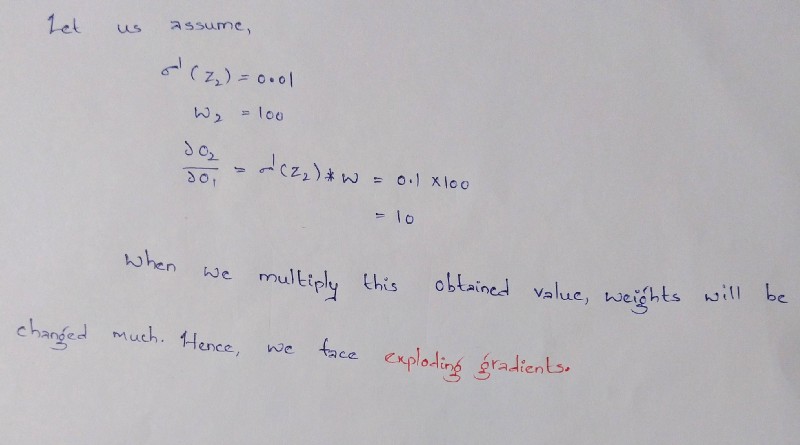 Let us assume,
σ'(z₂) = 0.01
W₂ = 100
∂O₂/∂O₁ = σ'(z₂) * W = 0.1 × 100
= 10
When we multiply this obtained value, weights will be
changed much. Hence, we face exploding gradients.